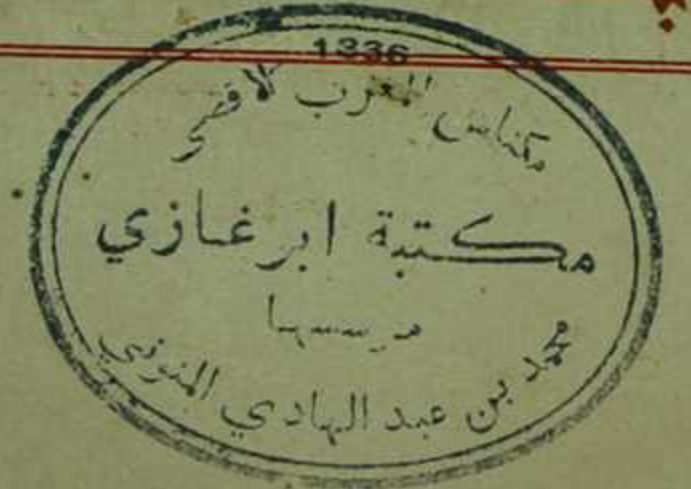 1336
مكناس المغرب لاقصى
مكتبة ابن غازي
مؤسسها
محمد بن عبد الهادي المنوني